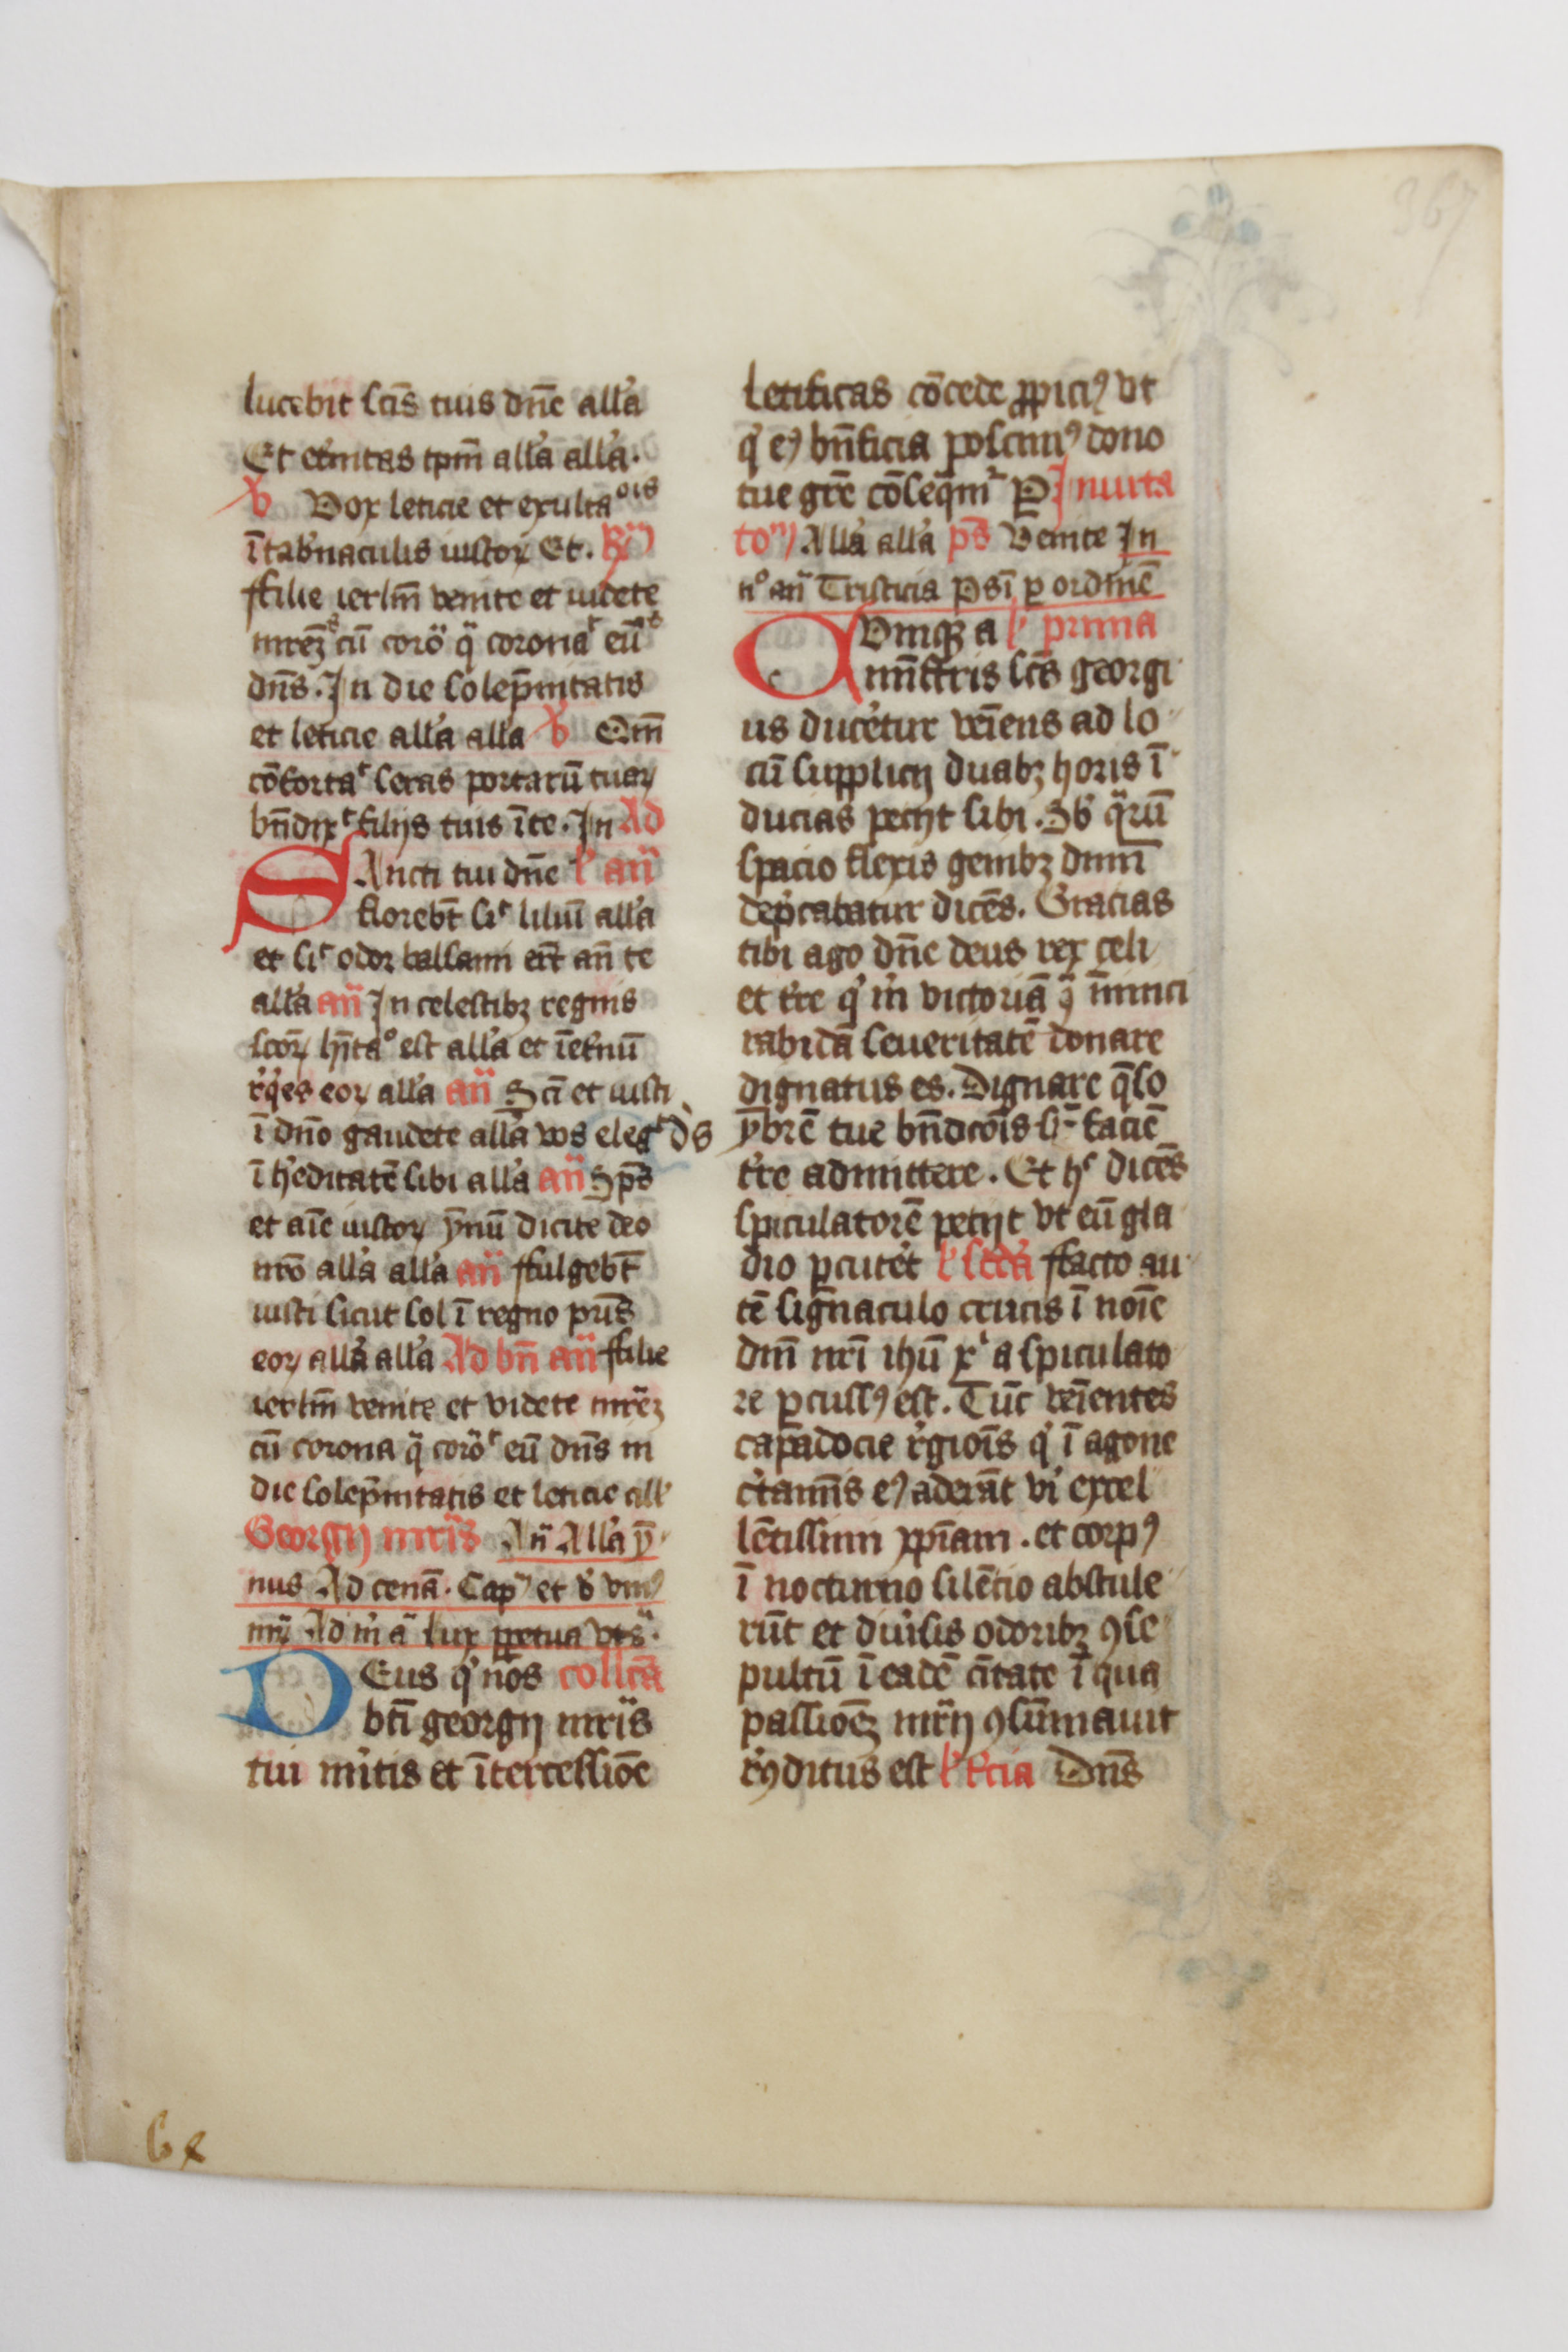 367
lucebit scīs tuis dn̄e all'a
Et et'nitas tp̄m all'a all'a.
v Vox leticie et exultaoīs
ī tab'naculis iustoꝝ Et. R
ffilie ierlm̄ venite et uidete
mr̄eꝫ cū coro q̄ coronat eū
dn̄s. In die solep̄nitatis
et leticie all'a alla v Qm̄
cōfortat seras portarū tuaꝝ
bn̄dixt filijs tuis ī te. In Ad
SAncti tui dn̄e l' an̄
florebt̄ sic liliū all'a
et sic odor balsami er̄t an̄ te
all'a an̄ In celestibꝫ regnis
scōꝝ hītao est all'a et ī et'nū
r'q'es eoꝝ all'a an̄ Scī et iusti
ī dn̄o gaudete all'a vos elegt ds
ī h'editatē sibi all'a an̄ Sps̄
et aīe iustoꝝ ȳnū dicite deo
nr̄o all'a all'a an̄ ffulgebt̄
iusti sicut sol ī regno pr̄is
eoꝝ all'a all'a Ad bn̄ an̄ ffilie
ierlm̄ venite et videte mr̄eꝫ
cū corona q̄ corot eū dn̄s in
die solep̄nitatis et leticie all'
Georgij mr̄is An̄ All'a ȳ
nus Ad cenā. Cap et v vniꝰ
mr̄ Ad m̄ ā Lux ꝑpetua vts̄.
DEus q' nos collc̄a
bt̄i georgij mr̄is
tui mit̄is et ītercessiōe
letificas cōcede ꝓpiciꝰ vt
q' eꝰ bn̄ficia poscimꝰ dono
tue grē cōseq̄mr P Inuita
to All'a all'a ps̄ Venite In
no an̄ Tristicia Psī ꝑ ordinē
CVmqꝫ a l' prima
mīstris scs̄ georgi
us ducetur ven̄iens ad lo
cū supplicij duabꝫ horis ī
ducias petijt sibi. Sb' q̄rū
spacio flexis genibꝫ dnm̄
dep'cabatur dicēs. Gracias
tibi ago dn̄e deus rex celi
et t're q' m' victoriā q̄ inimici
rabidā seueritatē donare
dignatus es. Dignare q̄so
ȳbrē tue bn̄dicōis sr̄ faciē
t're admittere. Et hc dicēs
spiculatorē petijt vt eū gla
dio ꝑcutet l' scd'a ffacto au
tē sig̅naculo crucis ī noīe
dn̄i nr̄i ih̄u xi a spiculato
re ꝑcussꝰ est. Tūc ven̄ientes
capadocie r'giois q' ī agone
c'tamīs eꝰ aderāt vi' excel
lētissimi xp̄iani. et corpꝰ
ī nocturno silēcio abstule
rūt et diu'sis odoribꝫ ꝯse
pultū ī eadē cītate ī qua
passioeꝫ mr̄ij ꝯsūmauit
r'ꝯditus est l' t'cia Dn̄s